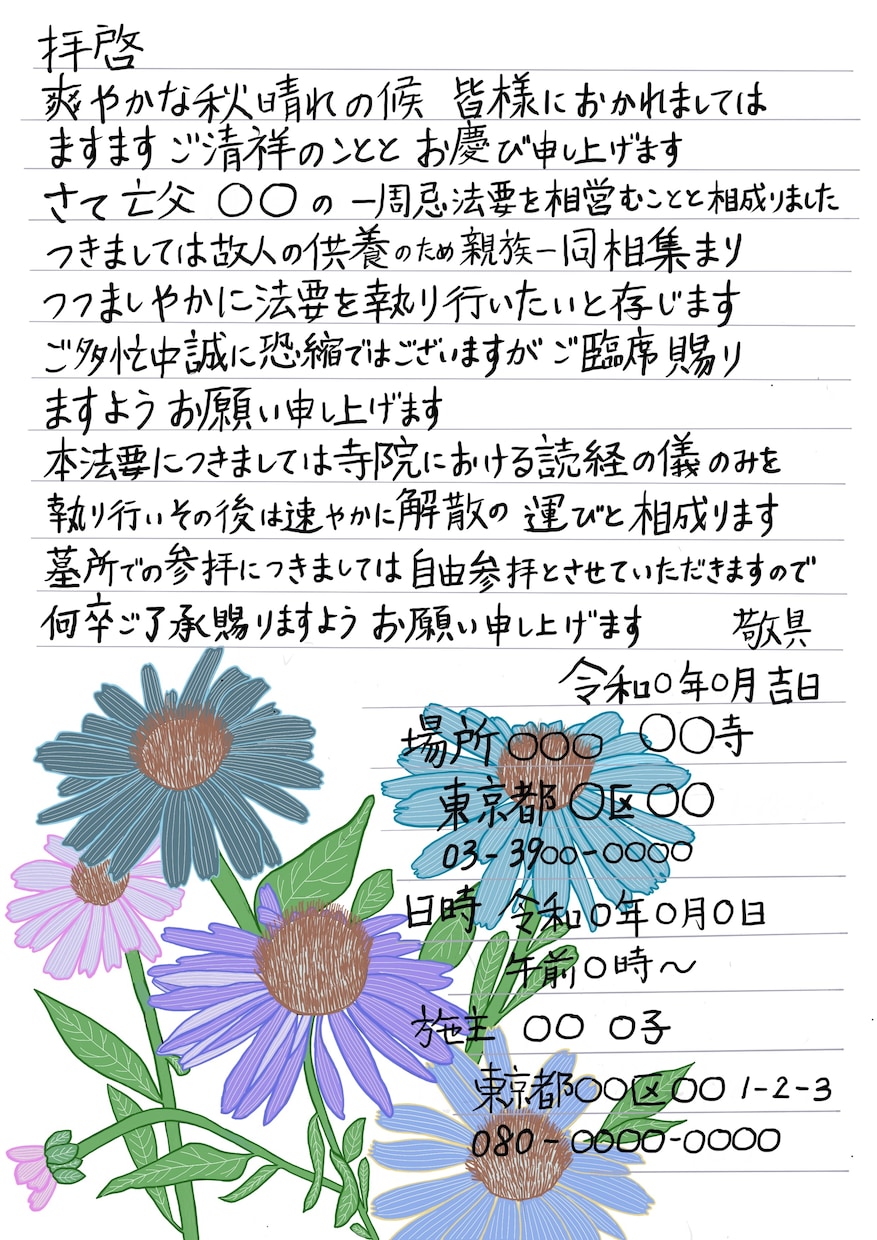 拝啓
爽やかな秋晴れの候 皆様におかれましては
ますますご清祥のことと お慶び申し上げます
さて 亡父 〇〇の 一周忌法要を相営むことと相成りました
つきましては故人の供養のため親族一同相集まり
つつましやかに法要を執り行いたいと存じます
ご多忙中誠に恐縮ではございますが ご臨席賜り
ますよう お願い申し上げます
本法要につきましては寺院における読経の儀のみを
執り行いその後は速やかに解散の運びと相成ります
墓所での参拝につきましては自由参拝とさせていただきますので
何卒ご了承賜りますよう お願い申し上げます 敬具
令和〇年〇月吉日
場所 〇〇〇 〇〇寺
東京都〇区〇〇
03-39〇〇-〇〇〇〇
日時 令和〇年〇月〇日
午前〇時〜
施主 〇〇 〇子
東京都〇〇区〇〇 1-2-3
080-〇〇〇〇-〇〇〇〇